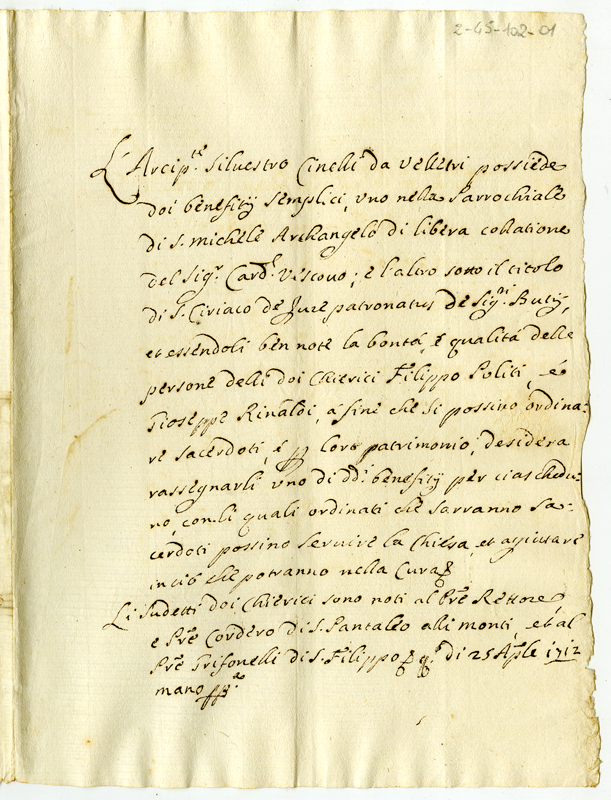 2-45-102-01
L'Arcip.te Silvestro Cinelli da Velletri possiede
doi benefitij semplici, uno nella Parrochiale
di S. Michele Archangelo di libera collatione
del Sig.r Card.l Vescovo; e l'altro sotto il titolo
di S. Ciriaco de Jure patronatus de Sig.ri Butij,
et essendoli ben note la bontà, e qualità delle
persone delli doi Chierici Filippo Politi, e
Gioseppe Rinaldi, a fine che si possino ordina-
re sacerdoti è loro patrimonio, desidera
rassegnarli uno di dd.i benefitij per ciaschedu-
no, con li quali ordinati che sarranno Sa-
cerdoti possino servire la Chiesa, et agiutare
in ciò che potranno nella Cura
Li sudetti doi Chierici sono noti al Pre Rettore,
e Pre Cordero di S. Pantaleo alli monti, et al
Pre Grifonelli di S. Filippo di 25 Aple 1712
mano